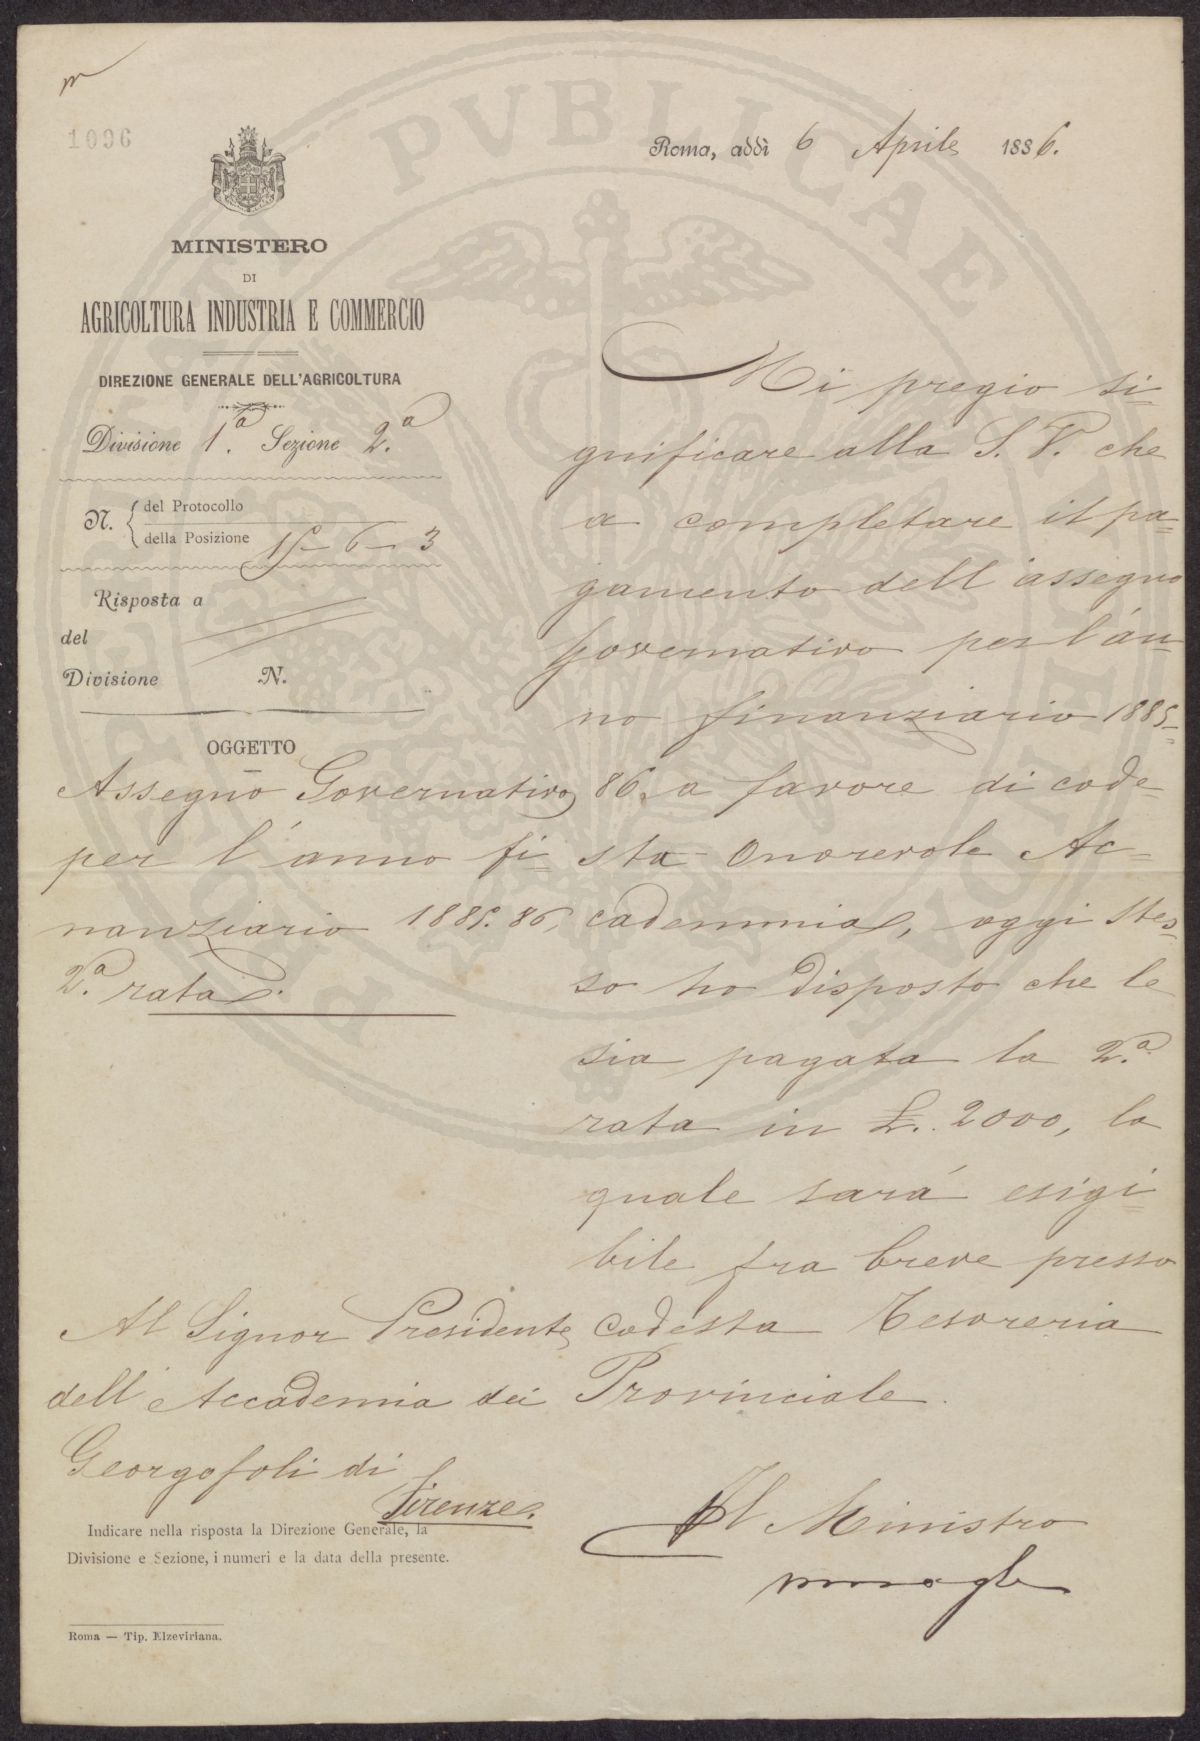 1096
Roma, addì 6 Aprile 1886.
MINISTERO
DI
AGRICOLTURA INDUSTRIA E COMMERCIO
DIREZIONE GENERALE DELL'AGRICOLTURA
Divisione 1.a Sezione 2.a
N. del Protocollo
della Posizione 15-6-3
Risposta a
del
Divisione N.
OGGETTO
Assegno Governativo
per l'anno fi-
nanziario 1885.86,
2.a rata.
Mi pregio si-
gnificare alla S. V. che
a completare il pa=
gamento dell'assegno
governativo per l'an=
no finanziario 1885=
86, a favore di code=
sta Onorevole Ac=
cademmia, oggi stes=
so ho disposto che le
sia pagata la 2.a
rata in £. 2000, la
quale sará esigi=
bile fra breve presso
codesta Tesoreria
Provinciale.
Il Ministro
Al Signor Presidente
dell'Accademia dei
Georgofoli di
Firenze.
Indicare nella risposta la Direzione Generale, la
Divisione e Sezione, i numeri e la data della presente.
Roma — Tip. Elzeviriana.
PVBLICAE